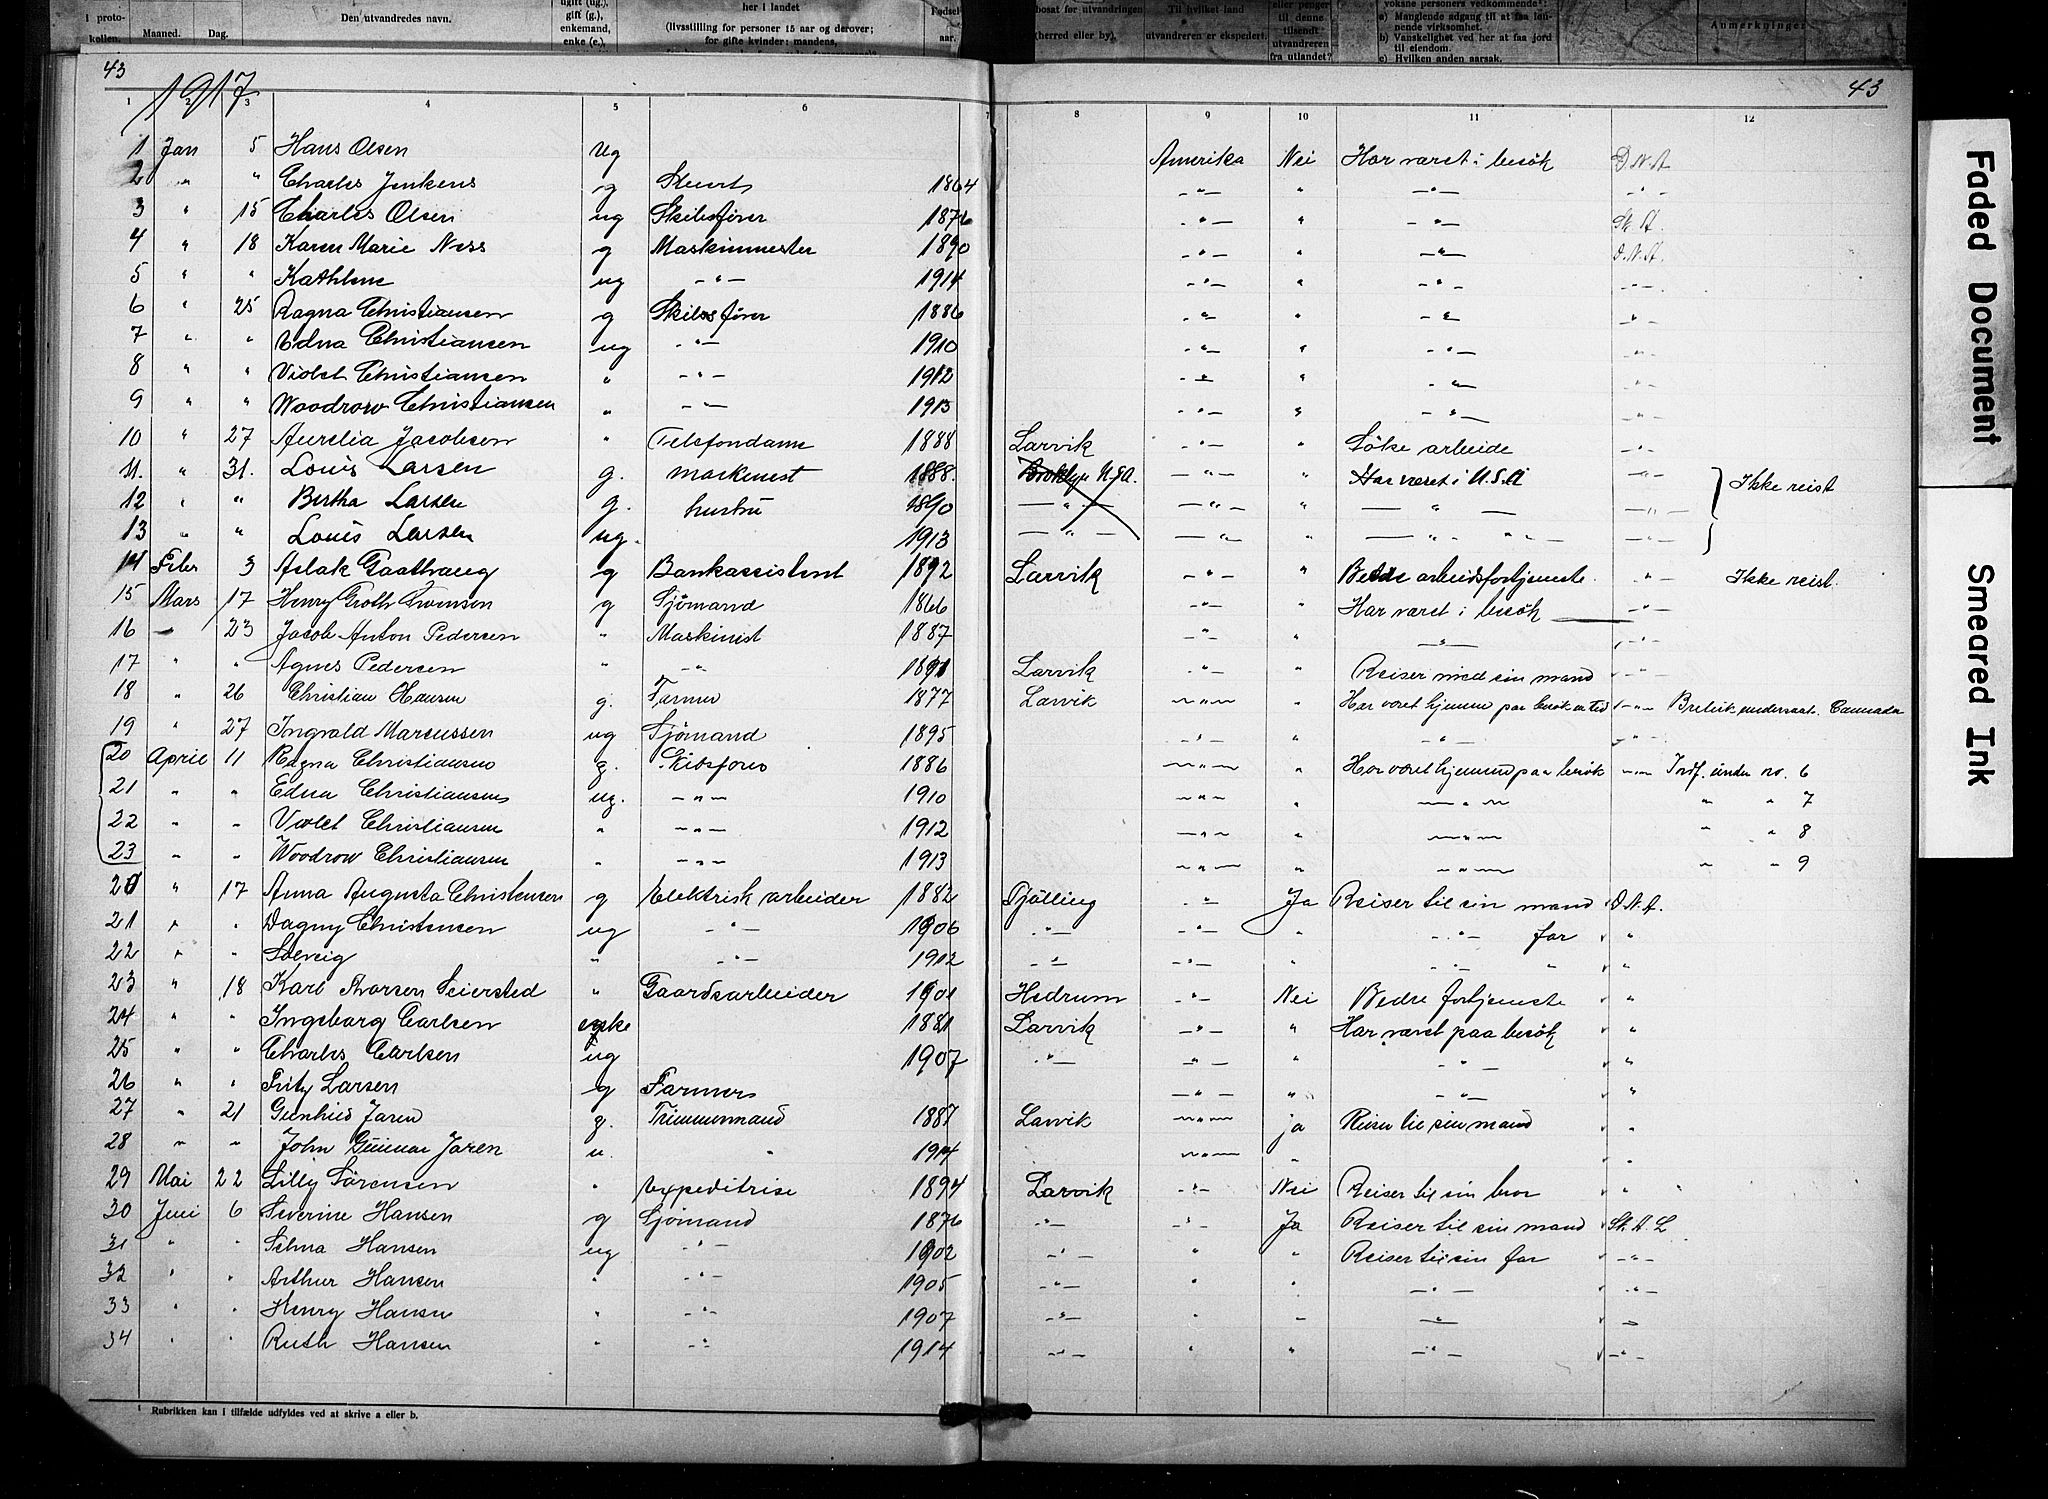 i proto-
kollen.
Maaned. Dag.
Den utvandredes navn.
ugift (ug.),
gift (g.),
enkemand,
enke (e.),
her i landet
(livsstilling for personer 15 aar og derover;
for gifte kvinder: mandens,
Fødsels-
aar.
bosat før utvandringen
(herred eller by),
Til hvilket land
utvandreren er ekspedert.
eller penger
til denne
tilsendt
utvandreren
fra utlandet?
voksne personers vedkommende:
a) Manglende adgang til at faa løn-
nende virksomhet.
b) Vanskelighet ved her at faa jord
til eiendom.
c) Hvilken anden aarsak.
Anmerkninger
43 43
1917
1 2 3 4 5 6 7 8 9 10 11 12
1 Jan 5 Hans Olsen ug Amerika Nei Har været i besök D.N.A
2 " " Charles Jenkens g Stuert 1864 -"- " -"- -"-
3 " 15 Charles Olsen ug Skibsfører 1876 -"- " -"- Sk. A.
4 " 18 Karen Marie Ness g Maskinmester 1890 -"- " -"- D.N.A.
5 " " Kathlene ug -"- 1914 -"- " -"- -"-
6 " 25 Ragna Christiansen g Skibsfører 1886 -"- " -"- -"-
7 " " Edna Christiansen ug -"- 1910 -"- " -"- -"-
8 " " Violet Christiansen " -"- 1912 -"- " -"- -"-
9 " " Woodrow Christiansen " -"- 1913 -"- " -"- -"-
10 " 27 Aurelia Jacobsen " Telefondame 1888 Larvik -"- " Söke arbeide -"-
11. " 31. Louis Larsen g. maskinest 1888. Broklyn U.S.A. -"- " Har været i U.S.A -"- Ikke reist
12 " " Bertha Larsen g. hustru 1890 -"- -"- " -"- -"-
13 " " Louis Larsen ug. 1913 -"- -"- " -"- -"-
14 Febr 3 Aslak Gaathaug g Bankassistent 1892 Larvik -"- " Bedre arbeidsfortjeneste -"- Ikke reist.
15 Mars 17 Henry Groth Svensen g Sjömand 1866 -"- " Har været i besök -"-
16 - 23 Jacob Anton Pedersen " Maskinist 1887 -"- " -"- -"-
17 " " Agnes Pedersen " -"- 1891 Larvik -"- " Reiser med sin mand -"-
18 " 26 Christian Hansen g. Farmer 1877 Larvik -"- " Har været hjemme paa besök en tid -"- Britisk undersaat. Cannada
19 " 27 Ingvald Marcussen ug Sjömand 1895 -"- " -"- -"-
20 April 11 Ragna Christiansen g. Skibsförer 1886 -"- " Har været hjemme paa besök -"- Indf. under no. 6
21 " " Edna Christiansen ug. -"- 1910 -"- " -"- " " 7
22 " " Violet Christiansen " -"- 1912 -"- " -"- " " 8
23 " " Woodrow Christiansen " -"- 1913 -"- " -"- " " 9
20 " 17 Anna Augusta Christensen g Elektrisk arbeider 1882 Tjölling -"- Ja Reiser til sin mand D.N.A.
21 " " Dagny Christensen ug -"- 1906 -"- -"- " -"- far "
22 " " Solveig " -"- 1912 -"- -"- " " " "
23 " 18 Karl Thorsen Seiersted " Gaardsarbeider 1901 Hedrum -"- Nei Bedre fortjeneste "
24 " " Ingeborg Carlsen enke 1881 Larvik -"- " Har været paa besök "
25 " " Charles Carlsen ug 1907 -"- -"- " -"- "
26 " " Fritz Larsen g Farmer -"- " -"- "
27 " 21 Gunhild Jaren g. Tömmermand 1887 Larvik -"- ja Reiser til sin mand "
28 " " John Gunnar Jaren u. " 1914 -"- " "
29 Mai 22 Lilly Sörensen " Expeditrise 1894 Larvik -"- Nei Reiser til sin bror "
30 Juni 6 Severine Hansen g Sjömand 1876 -"- -"- Ja Reiser til sin mand Sk. A. L
31 " " Selma Hansen ug -"- 1902 -"- " " Reiser til sin far -"-
32 " " Arthur Hansen " -"- 1905 -"- " " -"- -"-
33 " " Henry Hansen " -"- 1907 -"- " " -"- -"-
34 " " Ruth Hansen " -"- 1914 -"- " " -"- -"-
¹ Rubrikken kan i tilfælde udfyldes ved at skrive a eller b.
Faded Document
Smeared Ink